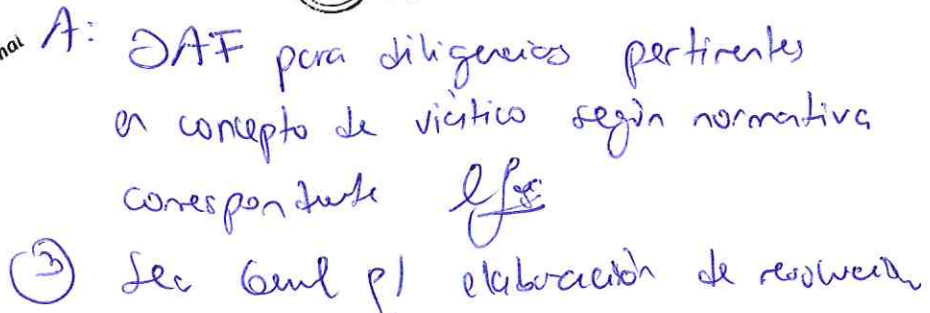 nal A: DAF para diligencias pertinentes
en concepto de viático según normativa
correspondiente
③ Sec Genl p/ elaboración de resolución